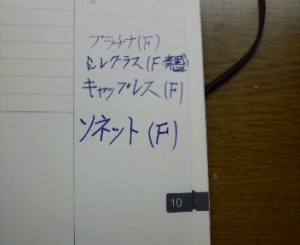 プラチナ(F)
シレグラス(F 青墨)
キャップレス(F)
ソネット(F)
10